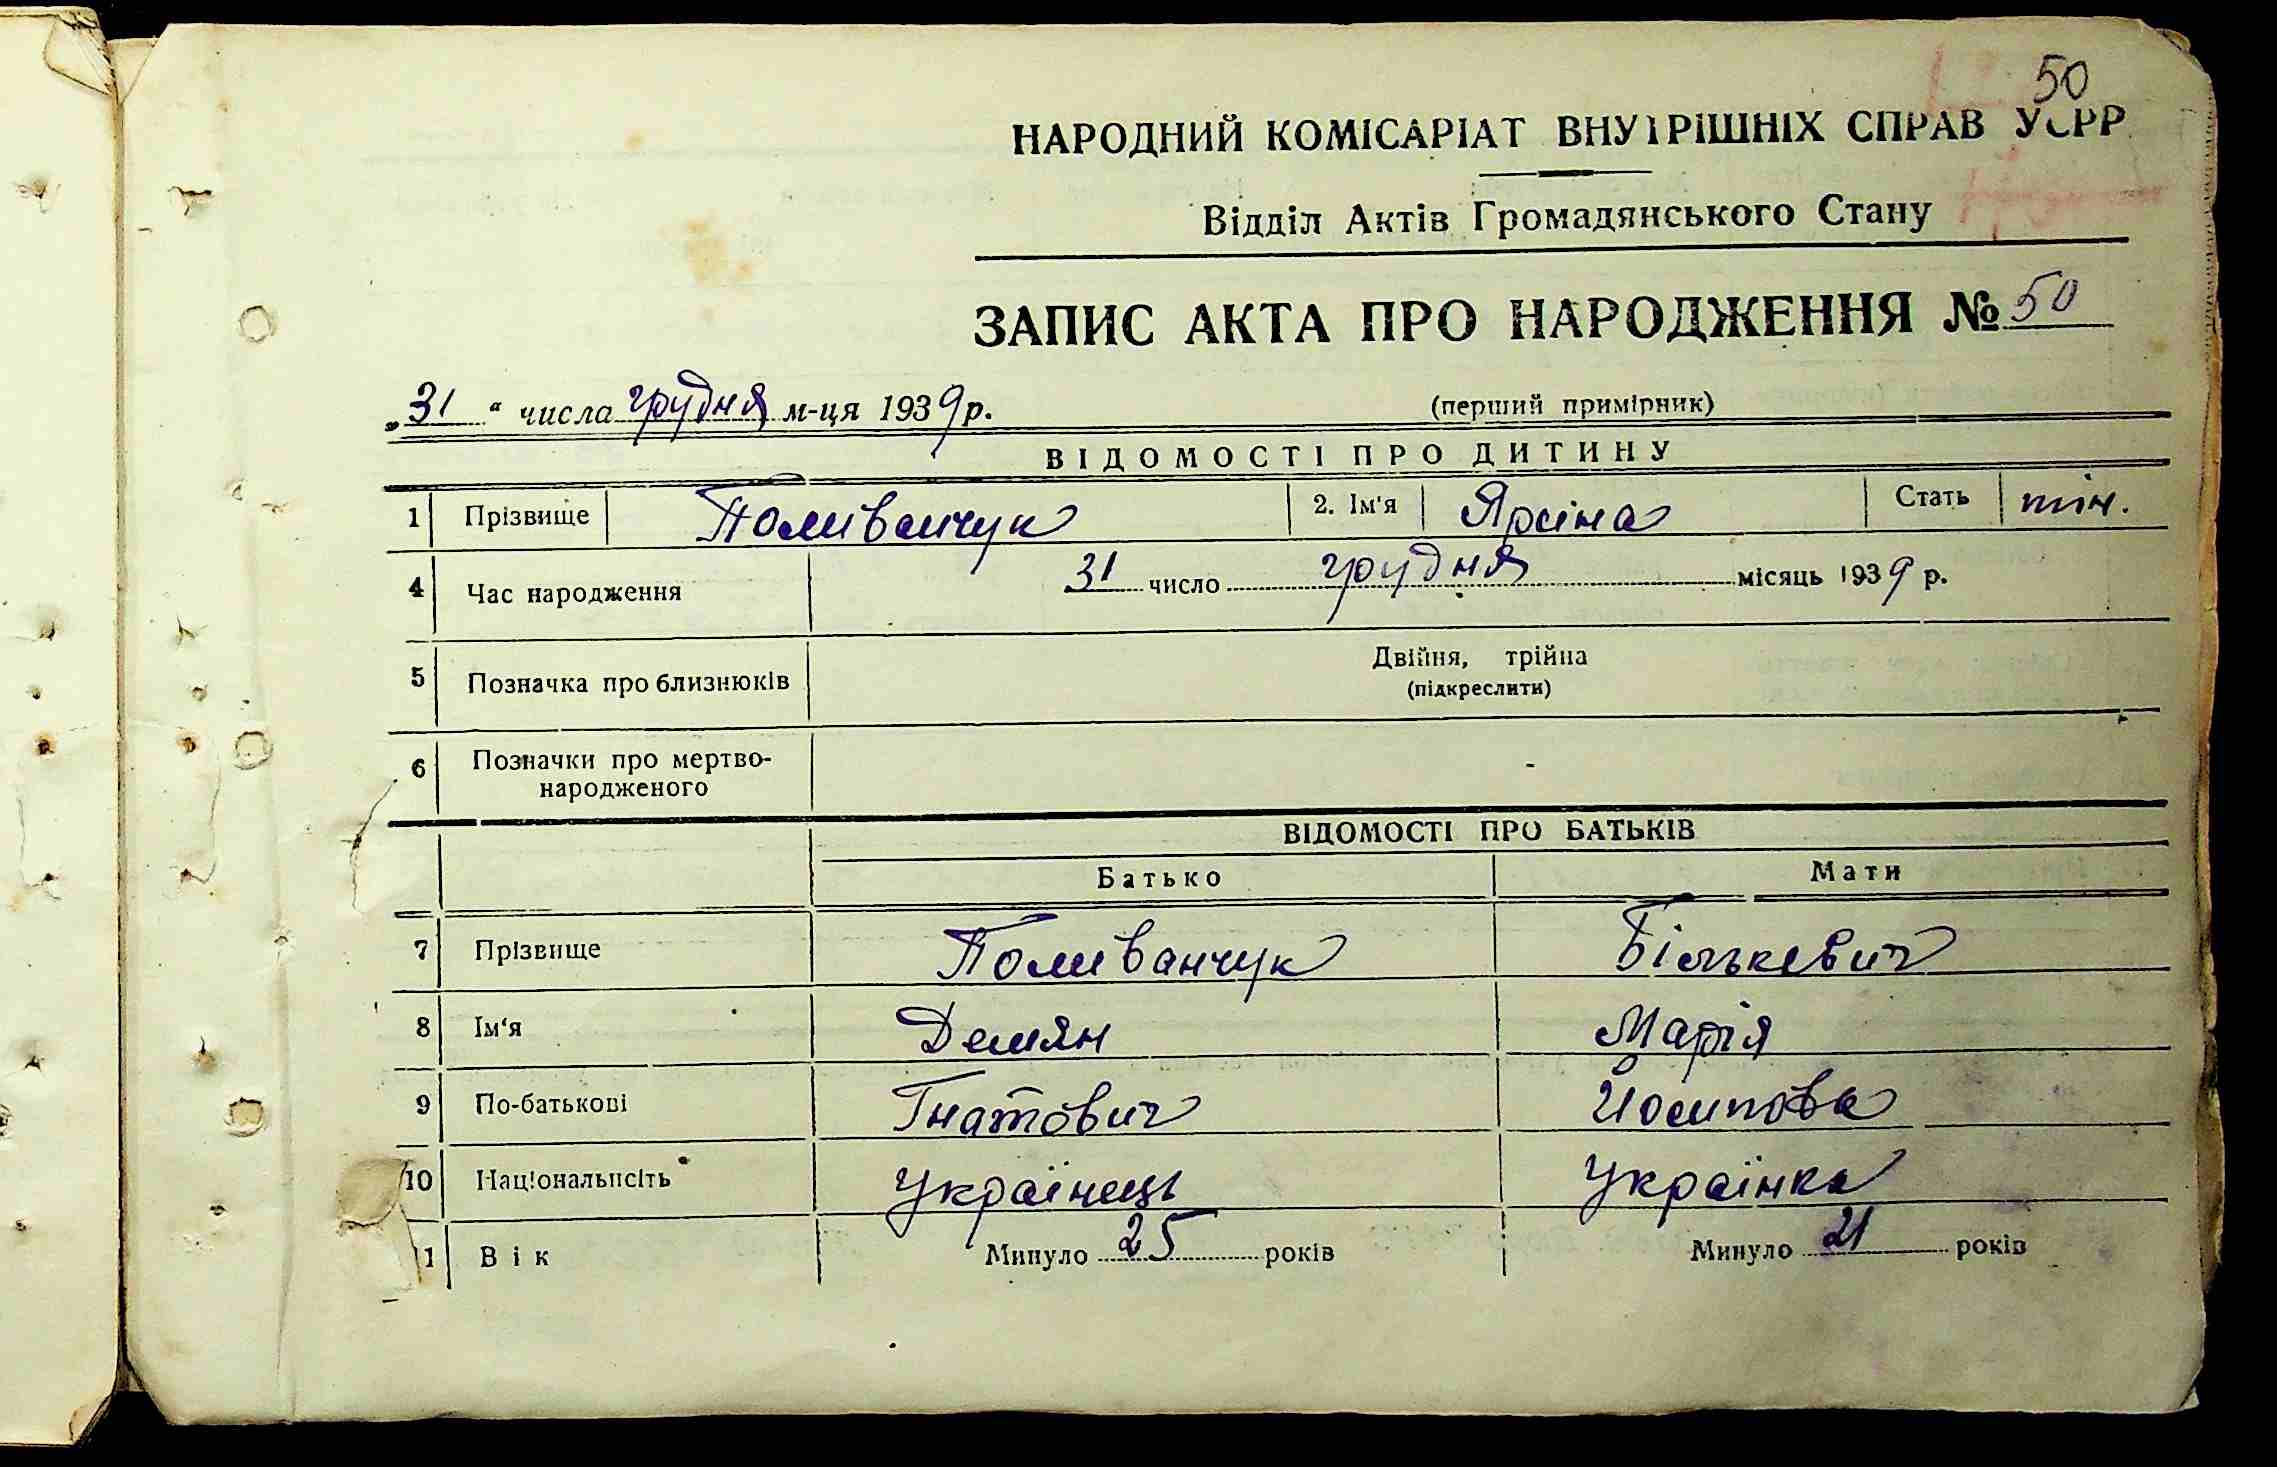 50
НАРОДНИЙ КОМІСАРІАТ ВНУТРІШНІХ СПРАВ УСРР
Відділ Актів Громадянського Стану
ЗАПИС АКТА ПРО НАРОДЖЕННЯ № 50
„31“ числа грудня м-ця 1939 р. (перший примірник)
ВІДОМОСТІ ПРО ДИТИНУ
1 Прізвище Поливанчук 2. Ім'я Яріна Стать жін.
4 Час народження 31 число грудня місяць 1939 р.
5 Позначка про близнюків Двійня, трійна
(підкреслити)
6 Позначки про мертво-
народженого -
ВІДОМОСТІ ПРО БАТЬКІВ
Батько Мати
7 Прізвище Поливанчук Бількевич
8 Ім'я Демян Марія
9 По-батькові Гнатович Йосипова
10 Національність українець українка
11 Вік Минуло 25 років Минуло 21 років